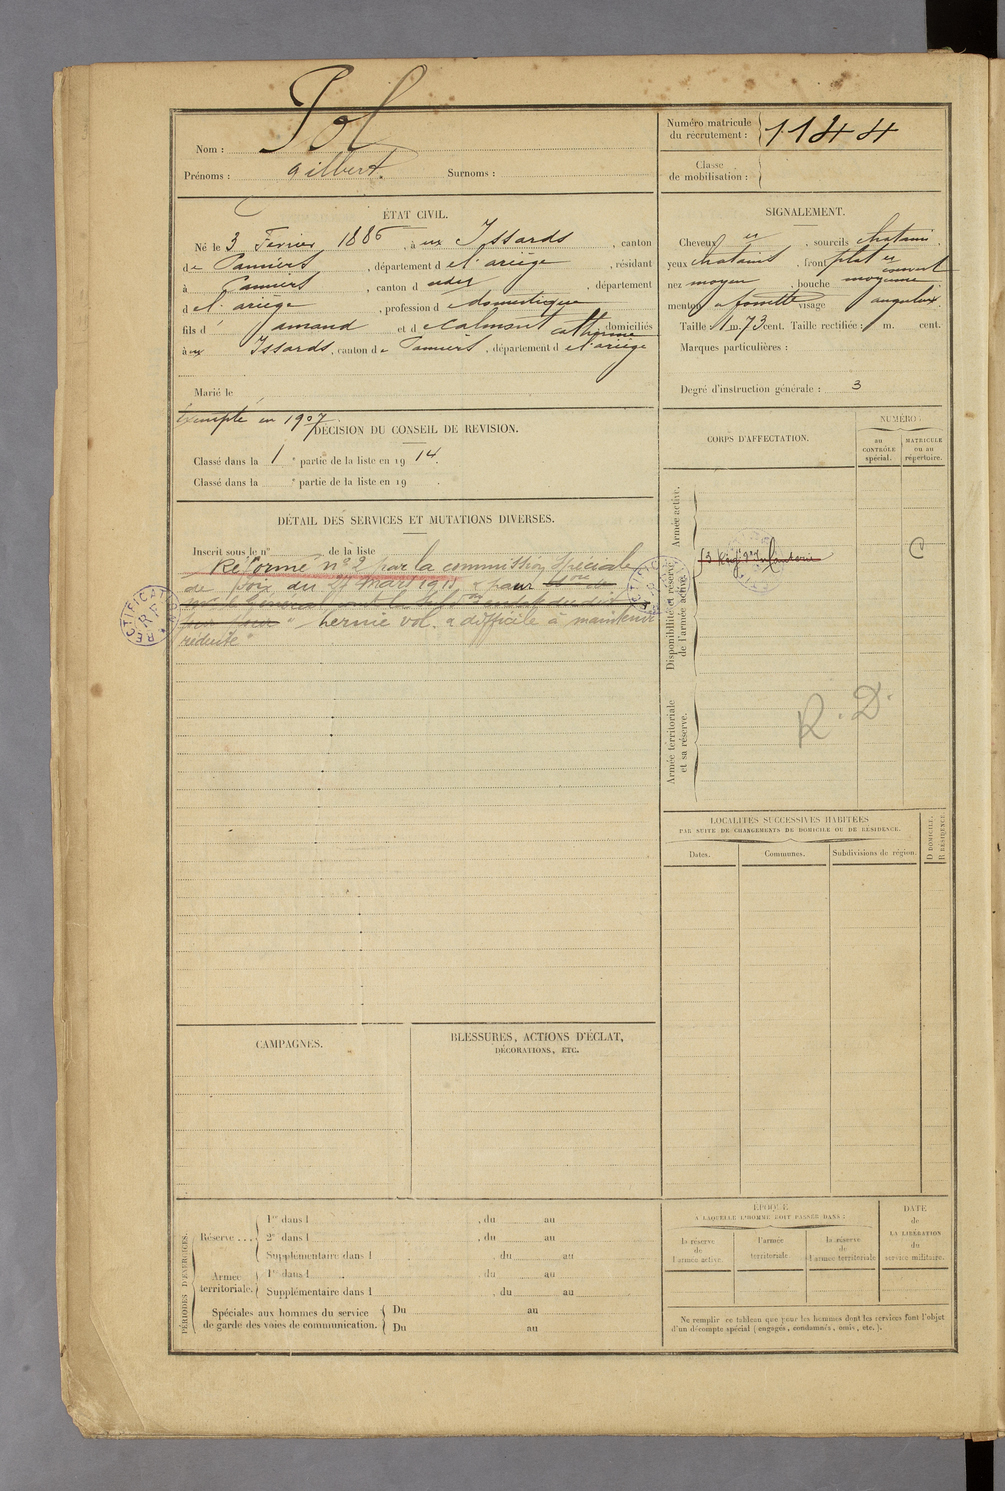 Nom : Pol
Prénoms : Gilbert. Surnoms :
Numéro matricule
du recrutement : 1144
Classe
de mobilisation :
ÉTAT CIVIL.
Né le 3 Fevrier 1886, à ux Issards, canton
de Pamiers, département de l'ariège, résidant
à Pamiers, canton d udit, département
de l'ariège, profession de domestique
fils d' amand et de Calmont Catherine, domiciliés
à ux Issards, canton de Pamiers, département de l'ariège
Marié le
SIGNALEMENT.
Cheveux, sourcils chatains.
yeux chatains, front plat
nez moyen, bouche moyenne
menton a fossette visage anguleux.
Taille : 1 m. 73 cent. Taille rectifiée : m. cent.
Marques particulières :
Degré d'instruction générale : 3
exempté en 1907
DÉCISION DU CONSEIL DE REVISION.
Classé dans la 1 e partie de la liste en 1914.
Classé dans la e partie de la liste en 19 .
DÉTAIL DES SERVICES ET MUTATIONS DIVERSES.
Inscrit sous le n° de la liste
Réformé n° 2 par la commission spéciale
de Foix du 27 mars 1915 pour
" hernie vol. difficile à maintenir
réduite "
RECTIFICATION
R.F.
CORPS D'AFFECTATION.
NUMÉRO :
au
CONTRÔLE
spécial.
MATRICULE
ou au
répertoire.
Armée active.
Disponibilité et réserve
de l'armée active.
Armée territoriale
et sa réserve.
Infanterie
C
R. D.
LOCALITÉS SUCCESSIVES HABITÉES
PAR SUITE DE CHANGEMENTS DE DOMICILE OU DE RÉSIDENCE.
Dates.
Communes.
Subdivisions de région.
D DOMICILE.
R RÉSIDENCE.
CAMPAGNES.
BLESSURES, ACTIONS D'ÉCLAT,
DÉCORATIONS, ETC.
PÉRIODES D'EXERCICES.
Réserve ...
1re dans l , du au
2e dans l , du au
Supplémentaire dans l , du au
Armée
territoriale.
1re dans l , du au
Supplémentaire dans l , du au
Spéciales aux hommes du service
de garde des voies de communication.
Du au
Du au
ÉPOQUE
À LAQUELLE L'HOMME DOIT PASSER DANS :
la réserve
de
l'armée active.
l'armée
territoriale
la réserve
de
l'armée territoriale
DATE
de
LA LIBÉRATION
du
service militaire.
Ne remplir ce tableau que pour les hommes dont les services font l'objet
d'un décompte spécial (engagés, condamnés, omis, etc.).